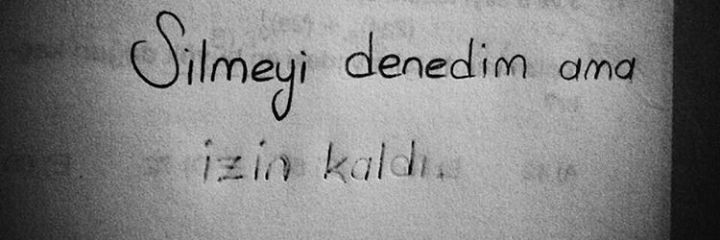 Silmeyi denedim ama
izin kaldı..